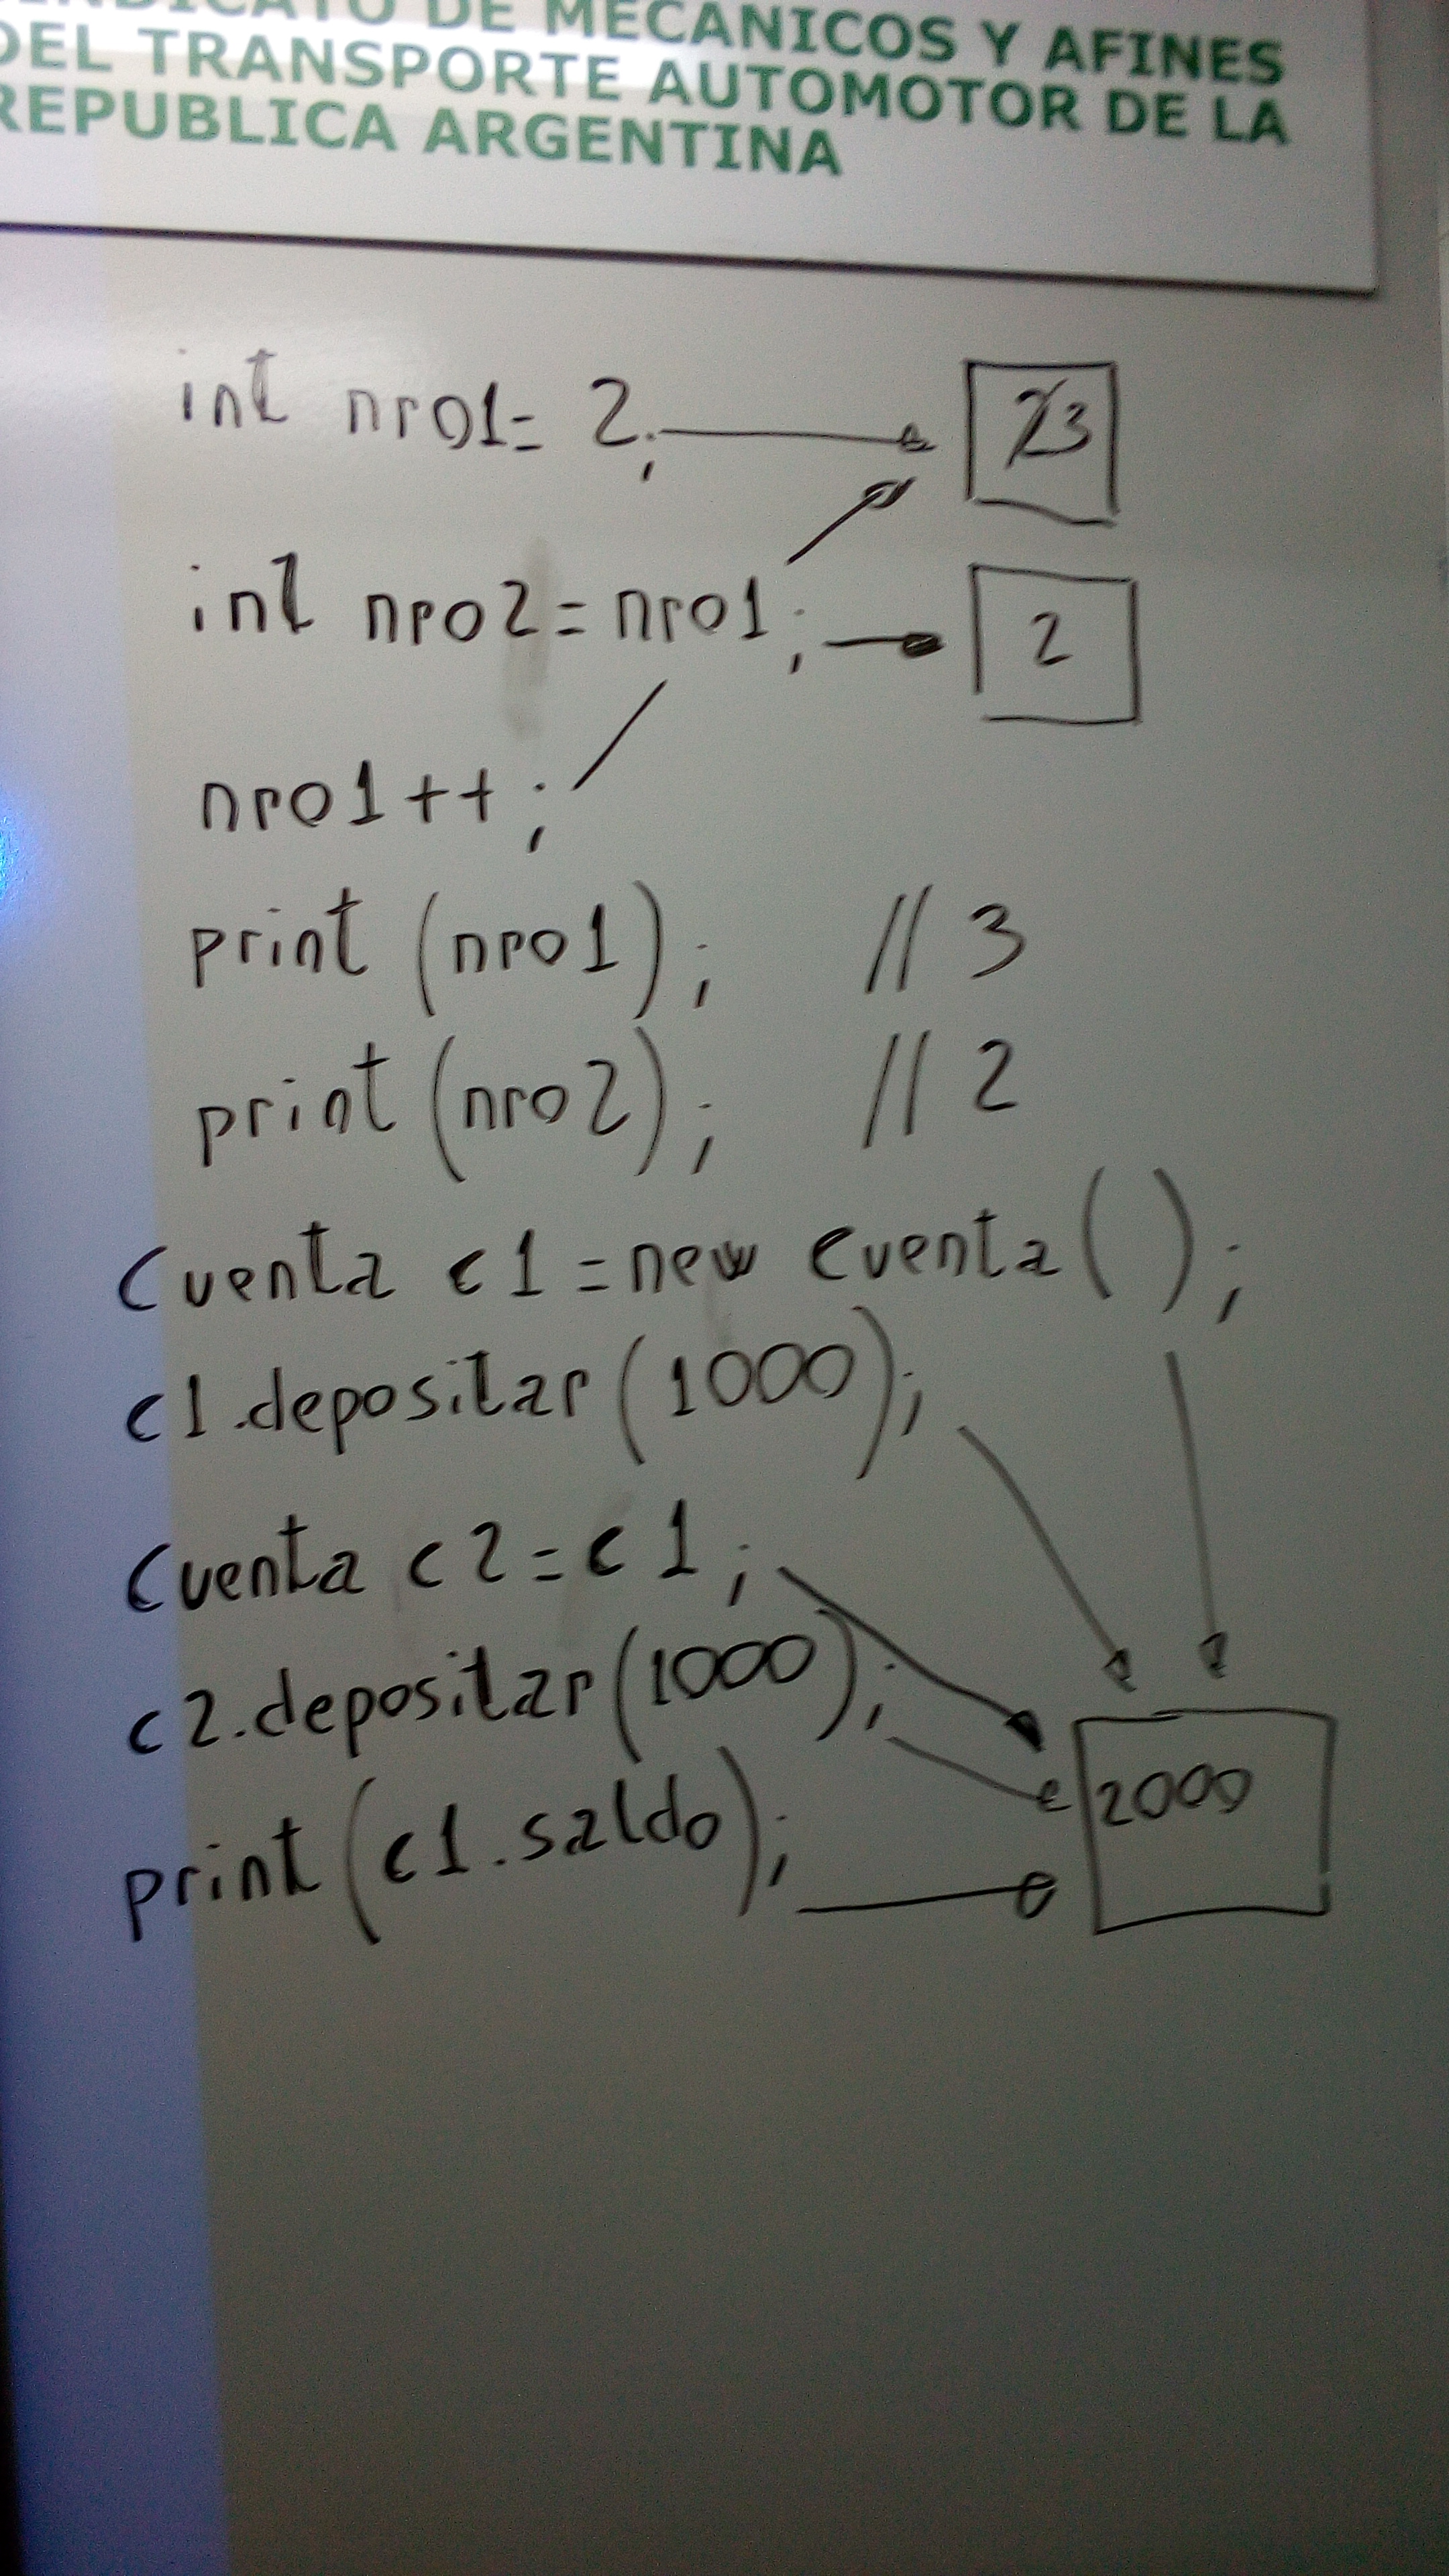 DE MECANICOS Y AFINES
DEL TRANSPORTE AUTOMOTOR DE LA
REPUBLICA ARGENTINA
int nro1= 2;
3
int nro2=nro1;
2
nro1++;
print (nro1); // 3
print (nro2); // 2
Cuenta c1=new Cuenta();
c1.depositar(1000);
Cuenta c2=c1;
c2.depositar(1000);
2000
print(c1.saldo);